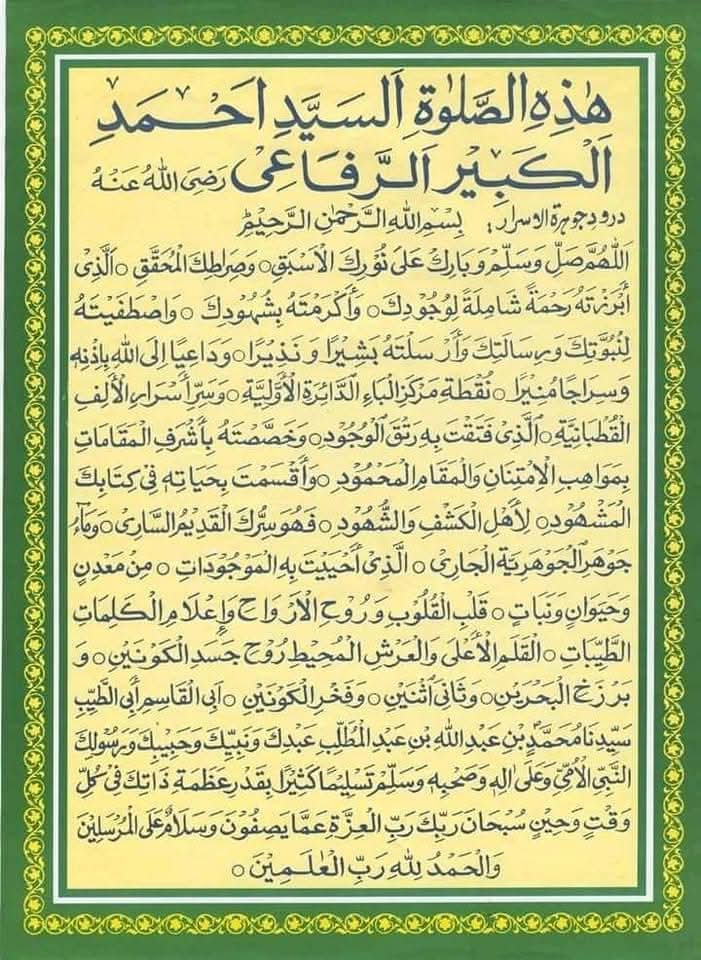 هٰذِهِ الصَّلٰوةِ اَلسَيَّدِ اَحْمَدِ
اَلْكَبِيْرِ اَلرَّفَاعِى رَضِىَ اللهُ عَنْهُ
درودجوهرة الاسرار: بِسْمِ اللهِ الرَّحْمٰنِ الرَّحِيْمِ
اَللّٰهُمَّ صَلِّ وَسَلِّمْ وَبَارِكْ عَلٰى نُوْرِكَ الْاَسْبَقِ ○ وَصِرَاطِكَ الْمُحَقَّقِ ○ اَلَّذِىْ
اَبْرَزْتَهُ رَحْمَةً شَامِلَةً لِوُجُوْدِكَ ○ وَاَكْرَمْتَهُ بِشُهُوْدِكَ ○ وَاصْطَفَيْتَهُ
لِنُبُوَّتِكَ وَرِسَالَتِكَ وَاَرْسَلْتَهُ بَشِيْرًا وَنَذِيْرًا ○ وَدَاعِيًا اِلَى اللهِ بِاِذْنِهٖ
وَسِرَاجًا مُنِيْرًا ○ نُقْطَةِ مَرْكَزِ الْبَاءِ الدَّائِرَةِ الْاَوَّلِيَّةِ ○ وَسِرِّ اَسْرَارِ الْاَلِفِ
الْقُطْبَانِيَّةِ ○ اَلَّذِىْ فَتَقْتَ بِهِ رَتْقَ الْوُجُوْدِ ○ وَخَصَّصْتَهُ بِاَشْرَفِ الْمَقَامَاتِ
بِمَوَاهِبِ الْاِمْتِنَانِ وَالْمَقَامِ الْمَحْمُوْدِ ○ وَاَقْسَمْتَ بِحَيَاتِهٖ فِىْ كِتَابِكَ
الْمَشْهُوْدِ ○ لِاَهْلِ الْكَشْفِ وَالشُّهُوْدِ ○ فَهُوَ سِرُّكَ الْقَدِيْمُ السَّارِىْ ○ وَمَاءُ
جَوْهَرِ الْجَوْهَرِيَّةِ الْجَارِىْ ○ الَّذِىْ اَحْيَيْتَ بِهِ الْمَوْجُوْدَاتِ ○ مِنْ مَعْدِنٍ
وَحَيَوَانٍ وَنَبَاتٍ ○ قَلْبِ الْقُلُوْبِ وَرُوْحِ الْاَرْوَاحِ وَاِعْلَامِ الْكَلِمَاتِ
الطَّيِّبَاتِ ○ الْقَلَمِ الْاَعْلٰى وَالْعَرْشِ الْمُحِيْطِ رُوْحِ جَسَدِ الْكَوْنَيْنِ ○ وَ
بَرْزَخِ الْبَحْرَيْنِ ○ وَثَانِىَ اثْنَيْنِ ○ وَفَخْرِ الْكَوْنَيْنِ ○ اَبِى الْقَاسِمِ اَبِى الطَّيِّبِ
سَيِّدِنَا مُحَمَّدِ بْنِ عَبْدِ اللهِ بْنِ عَبْدِ الْمُطَّلِبِ عَبْدِكَ وَنَبِيِّكَ وَحَبِيْبِكَ وَرَسُوْلِكَ
النَّبِىِّ الْاُمِّىِّ وَعَلٰى اٰلِهٖ وَصَحْبِهٖ وَسَلِّمْ تَسْلِيْمًا كَثِيْرًا بِقَدْرِ عَظَمَةِ ذَاتِكَ فِىْ كُلِّ
وَقْتٍ وَحِيْنٍ سُبْحَانَ رَبِّكَ رَبِّ الْعِزَّةِ عَمَّا يَصِفُوْنَ وَسَلَامٌ عَلَى الْمُرْسَلِيْنَ
وَالْحَمْدُ لِلّٰهِ رَبِّ الْعٰلَمِيْنَ ○